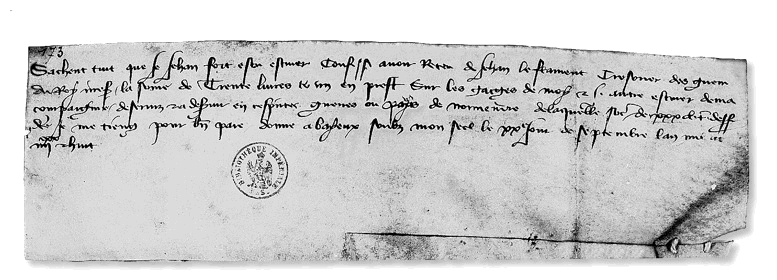 173
Sachent tuit que Je Jehan fort escuier Confesse avoir Receu de Jehan le flament Tresorier des guerres
du Roy nres la some de Trente livres t en prest Sur les gaiges de moy & autre escuier de ma
compaignie desserviz & a desservir en ces guerres ou pays de normendie de laquelle some de xxx
je me tieng pour bien paie donne a bayeux soubz mon seel le xxe jour de septembre lan mil
& huit
BIBLIOTHÈQUE IMPÉRIALE